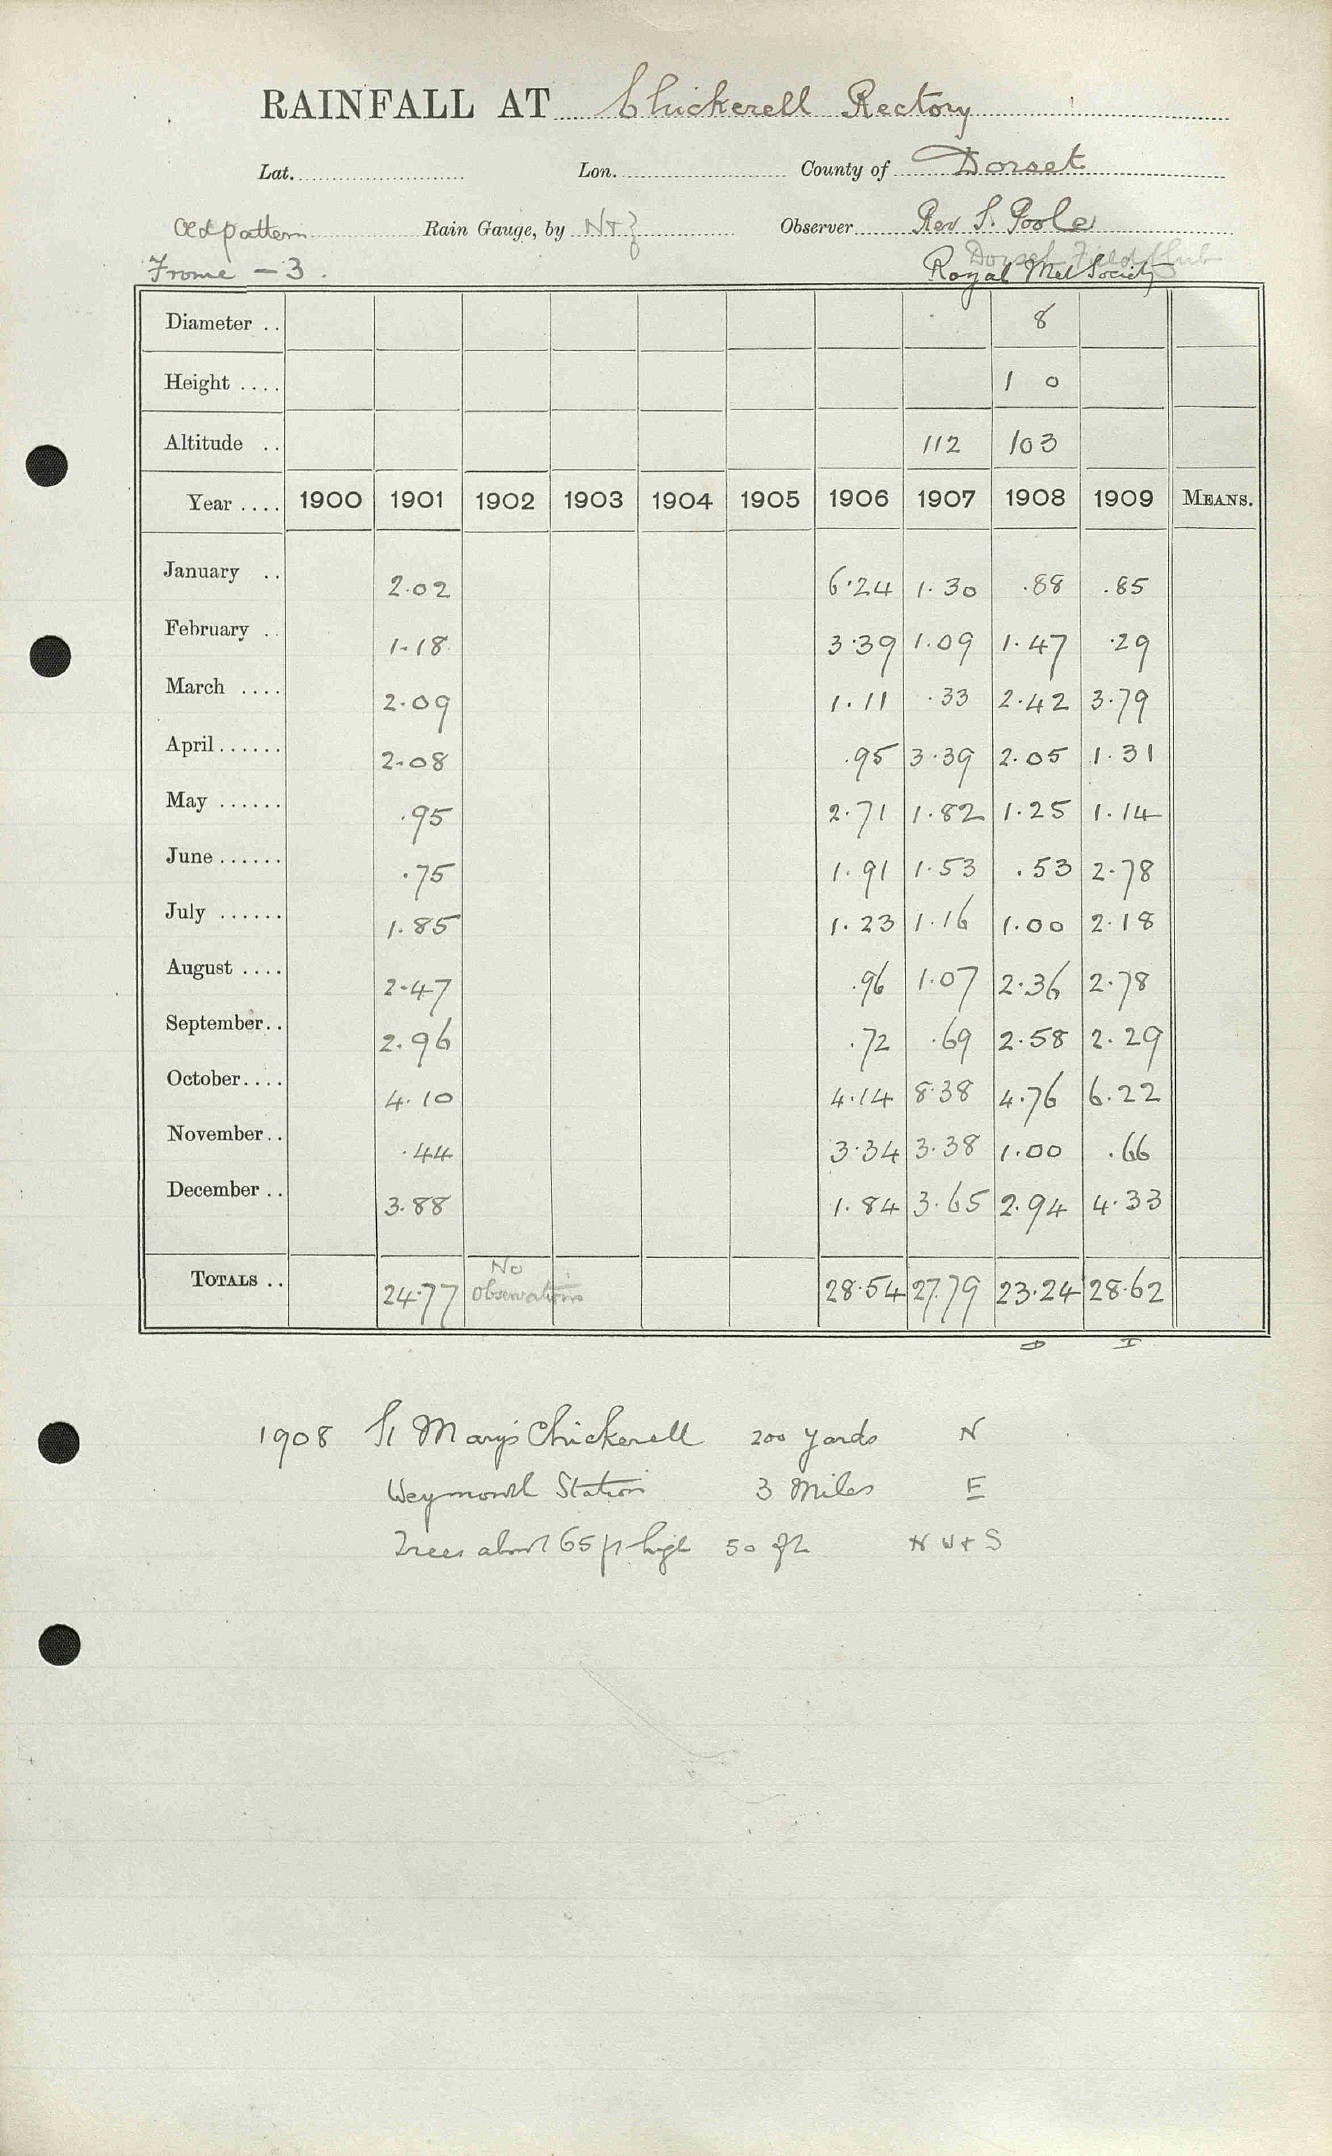 RAINFALL AT Chickerell Rectory
Lat. Lon. County of Dorset
Old pattern Rain Gauge, by N+Z Observer Rev S. Poole
Dorset Field Club
Frome - 3. Royal Met Society
Diameter .. 8
Height .... 1 0
Altitude .. 112 103
Year .... 1900 1901 1902 1903 1904 1905 1906 1907 1908 1909 MEANS.
January .. 2.02 6.24 1.30 .88 .85
February .. 1.18 3.39 1.09 1.47 .29
March .... 2.09 1.11 .33 2.42 3.79
April ...... 2.08 .95 3.39 2.05 1.31
May ...... .95 2.71 1.82 1.25 1.14
June ...... .75 1.91 1.53 .53 2.78
July ...... 1.85 1.23 1.16 1.00 2.18
August .... 2.47 .96 1.07 2.36 2.78
September .. 2.96 .72 .69 2.58 2.29
October .... 4.10 4.14 8.38 4.76 6.22
November .. .44 3.34 3.38 1.00 .66
December .. 3.88 1.84 3.65 2.94 4.33
TOTALS .. 24.77 No observations 28.54 27.79 23.24 28.62
D I
1908 St Mary's Chickerell 200 yards N
Weymouth Station 3 Miles E
Trees about 65 ft high 50 ft N W + S